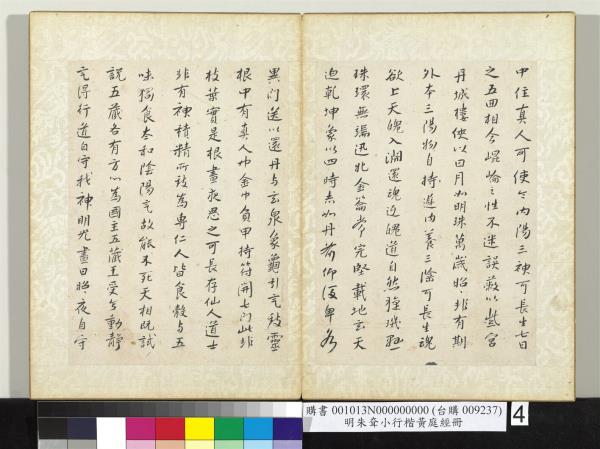 中住真人可使令內陽三神可長生七日
之五回相合崐崘之性不迷誤蔽以紫宮
丹城樓俠以日月如明珠萬歲昭昭非有期
外本三陽物自持進內養三陰可長生魂
欲上天魄入淵還魂返魄道自然璇璣
珠環無端迅牝金籥常完堅載地玄天
迫乾坤象以四時赤如丹前仰後卑各
異門送以還丹與玄泉象龜引氣致靈
根中有真人巾金巾負甲持符開七門此非
枝葉實是根晝夜思之可長存仙人道士
非有神積精所致為專仁人皆食穀與五
味獨食太和陰陽氣故能不死天相既試
說五藏各有方心為國主五藏王受氣動靜
氣得行道自守我神明光晝日昭昭夜自守
購書 001013N000000000 (台購 009237)
明朱耷小行楷黃庭經冊
4